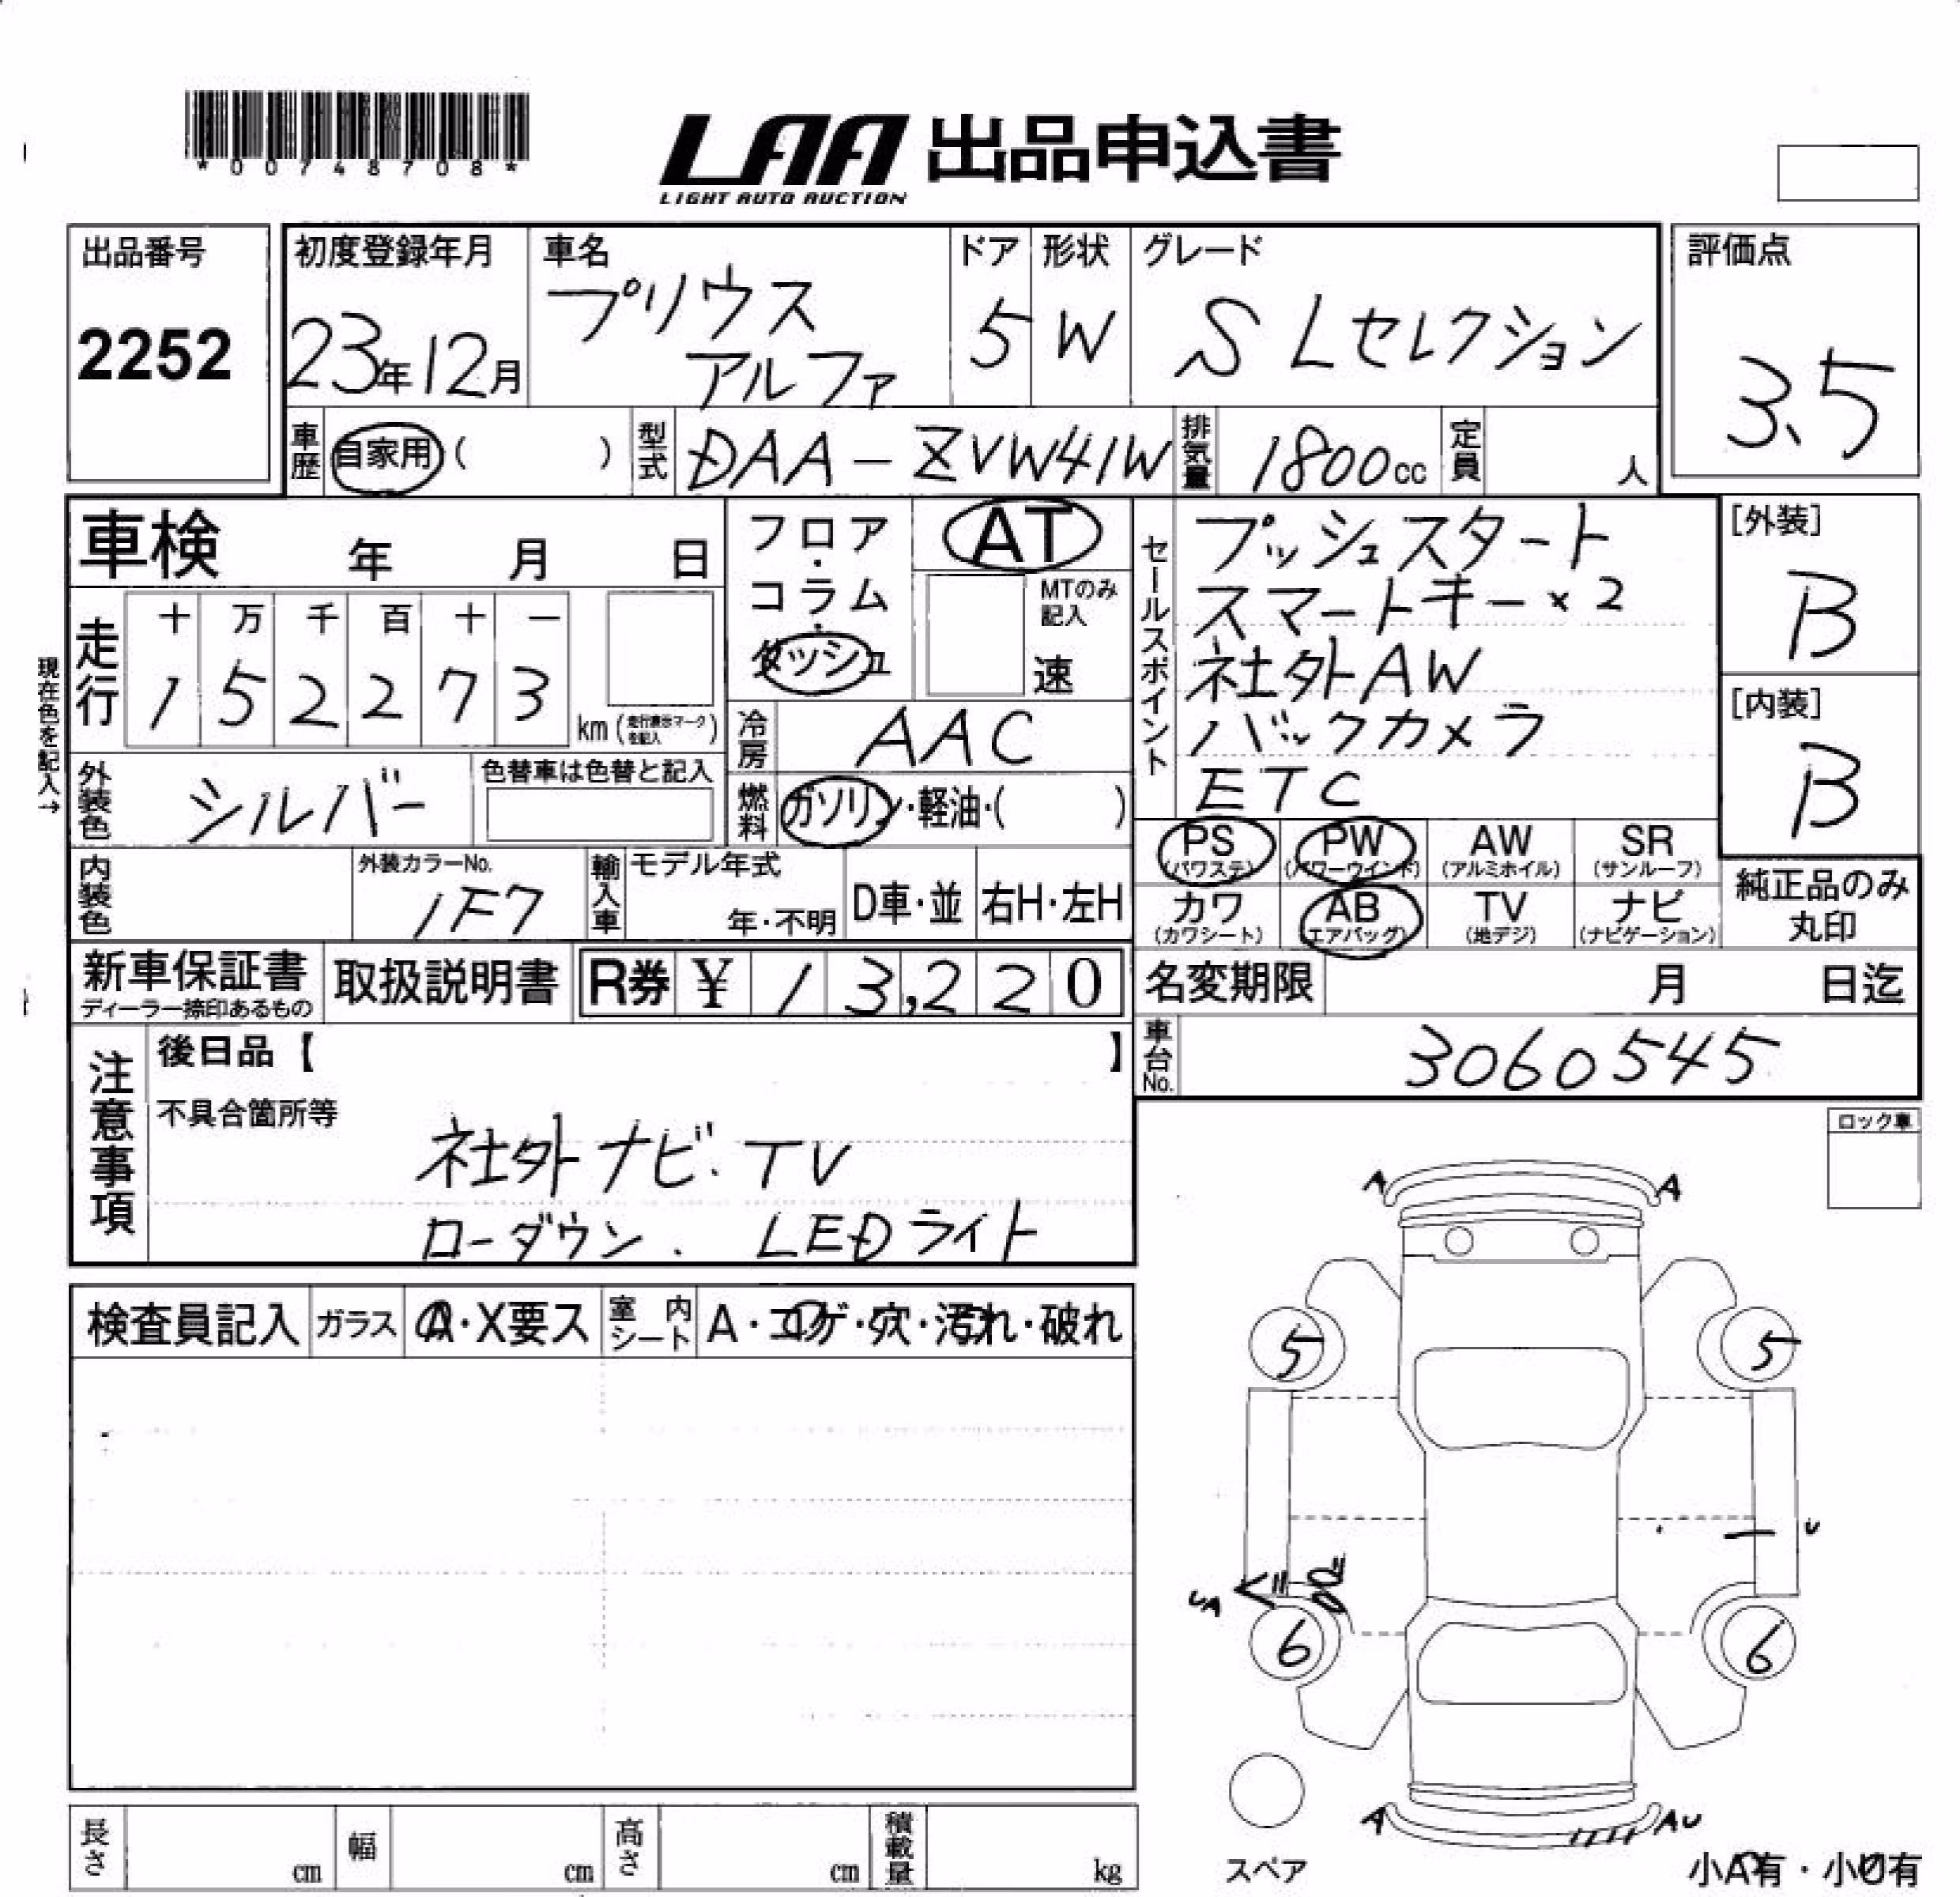 *00748708*
LAA 出品申込書
LIGHT AUTO AUCTION
出品番号
2252
初度登録年月
23年12月
車名
プリウス
アルファ
ドア
5
形状
W
グレード
S Lセレクション
評価点
3.5
車歴
自家用 ( )
型式
DAA-ZVW41W
排気量
1800cc
定員
人
車検 年 月 日
フロア・コラム・ダッシュ
AT
MTのみ記入
速
走行
十 万 千 百 十 一
1 5 2 2 7 3
km (走行表示マークを記入)
現在色を記入→
冷房
AAC
外装色
シルバー
色替車は色替と記入
燃料
ガソリン・軽油・( )
内装色
外装カラーNo.
1F7
輸入車
モデル年式
年・不明
D車・並
右H・左H
セールスポイント
プッシュスタート
スマートキー×2
社外AW
バックカメラ
ETC
[外装]
B
[内装]
B
PS (パワステ)
PW (パワーウインド)
AW (アルミホイル)
SR (サンルーフ)
カワ (カワシート)
AB (エアバッグ)
TV (地デジ)
ナビ (ナビゲーション)
純正品のみ
丸印
新車保証書
ディーラー捺印あるもの
取扱説明書
R券 ¥ 13,220
名変期限 月 日迄
車台No.
3060545
注意事項
後日品【 】
不具合箇所等
社外ナビ.TV
ローダウン. LEDライト
ロック車
検査員記入
ガラス
A・X要ス
室内シート
A・コゲ・穴・汚れ・破れ
A A
5 5
U
UA
6 6
A AU
スペア
小A有・小U有
長さ cm
幅 cm
高さ cm
積載量 kg